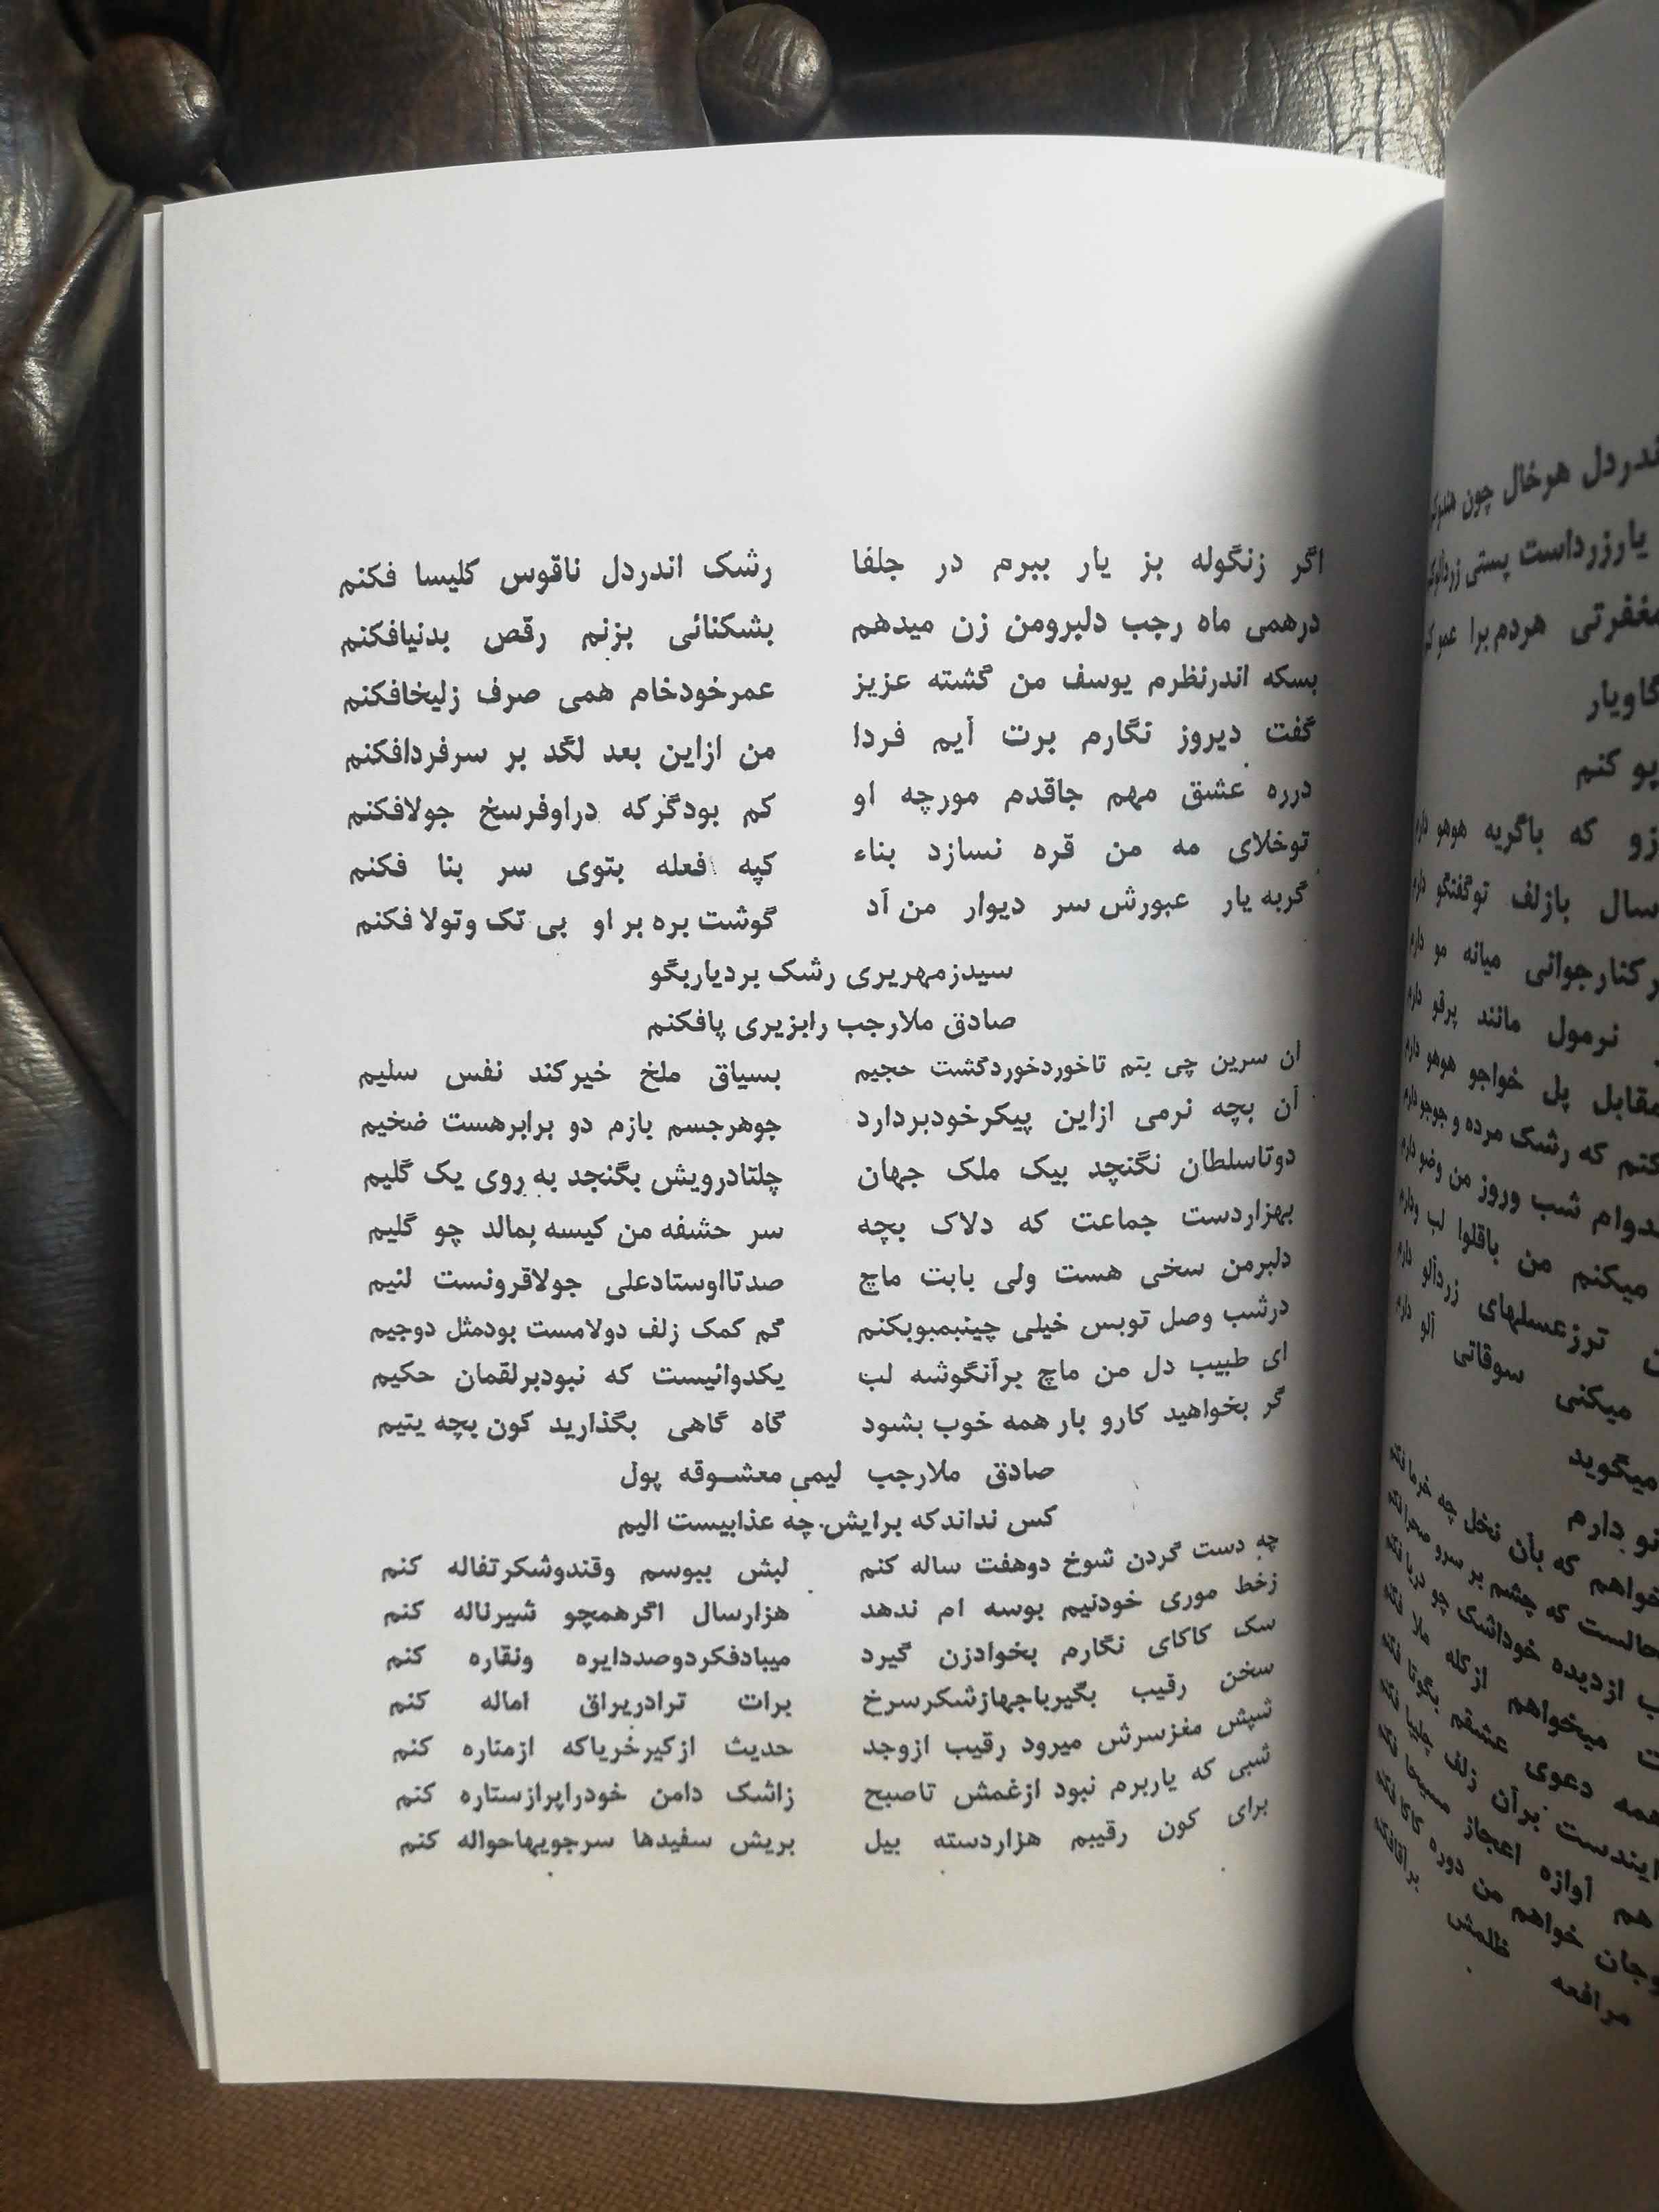 اگر زنگوله بز یار ببرم در جلفا رشک اندردل ناقوس کلیسا فکنم
درهمی ماه رجب دلبرومن زن میدهم بشکنائی بزنم رقص بدنیافکنم
بسکه اندرنظرم یوسف من گشته عزیز عمرخودخام همی صرف زلیخافکنم
گفت دیروز نگارم برت آیم فردا من ازاین بعد لگد بر سرفردافکنم
درره عشق مهم جاقدم مورچه او کم بودگزکه دراوفرسخ جولافکنم
توخلای مه من قره نسازد بناء کپه فعله بتوی سر بنا فکنم
گربه یار عبورش سر دیوار من آد گوشت بره بر او بی تک وتولا فکنم
سیدزمهریری رشک بردیاربگو
صادق ملارجب رابزیری پافکنم
آن سرین چی بتم تاخوردخوردگشت حجیم بسیاق ملخ خیرکند نفس سلیم
آن بچه نرمی ازاین پیکرخودبردارد جوهرجسم بازم دو برابرهست ضخیم
دوتاسلطان نگنچد بیک ملک جهان چلتادرویش بگنجد به روی یک گلیم
بهزاردست جماعت که دلاک بچه سر حشفه من کیسه بمالد چو گلیم
دلبرمن سخی هست ولی بابت ماچ صدتااوستادعلی جولاقرونست لنیم
درشب وصل توبس خیلی چینبمبوبکنم گم کمک زلف دولامست بودمثل دوجیم
ای طبیب دل من ماچ برآنگوشه لب یکدوائیست که نبودبرلقمان حکیم
گر بخواهید کارو بار همه خوب بشود گاه گاهی بگذارید کون بچه یتیم
صادق ملارجب لیمی معشوقه پول
کس نداندکه برایش چه عذابیست الیم
چه دست گردن شوخ دوهفت ساله کنم لبش ببوسم وقندوشکرتفاله کنم
زخط موری خودنیم بوسه ام ندهد هزارسال اگرهمچو شیرناله کنم
سک کاکای نگارم بخوادزن گیرد میبادفکردوصددایره ونقاره کنم
سخن رقیب بگیرباجهازشکرسرخ برات ترادریراق اماله کنم
شپش مغزسرش میرود رقیب ازوجد حدیث ازکیرخریاکه ازمناره کنم
شبی که یاربرم نبود ازغمش تاصبح زاشک دامن خودراپرازستاره کنم
برای کون رقیبم هزاردسته بیل بریش سفیدها سرجویهاحواله کنم
دردل هرخال چون
یارزرداست پستی
مغفرتی هردم برا عمو
گاویار
پو کنم
زو که باگریه هوهو دارم
سال بازلف توگفتگو دارم
کنارجوانی میانه مو دارم
نرمول مانند پرقو دارم
مقابل پل خواجو هوهو دارم
کنم که رشک مرده و جوجو دارم
دوام شب وروز من وضو دارم
میکنم من باقلوا لب ودارم
ترزعسلهای زردآلو دارم
میکنی سوقاتی آلو دارم
میگوید
نو دارم
خواهم که بآن نخل چه خرما
حالست که چشم بر سرو
ازدیده خوداشک چو دریا
میخواهم ازکله ملا
همه دعوی عشقم بگوتا
ایندست برآن زلف چلیپا
هم آوازه اعجاز مسیحا
وجان خواهم من دوره کاکا
ظلمش
مرافعه